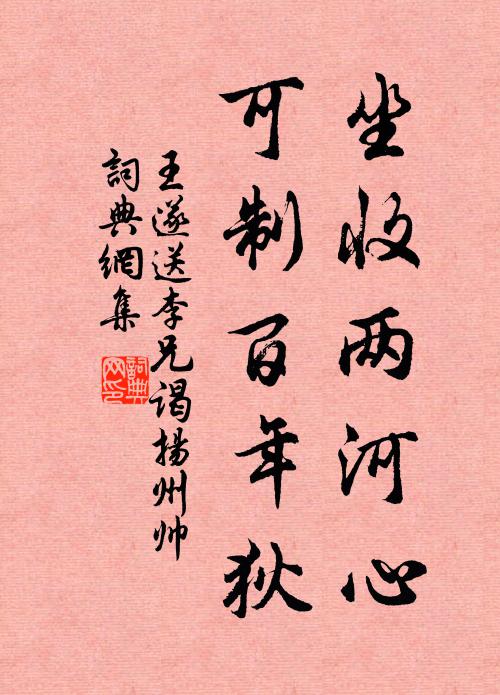 坐收两河心
可制百年狄
王遂送李兄谒扬州帅
詞典網集
詞典網印